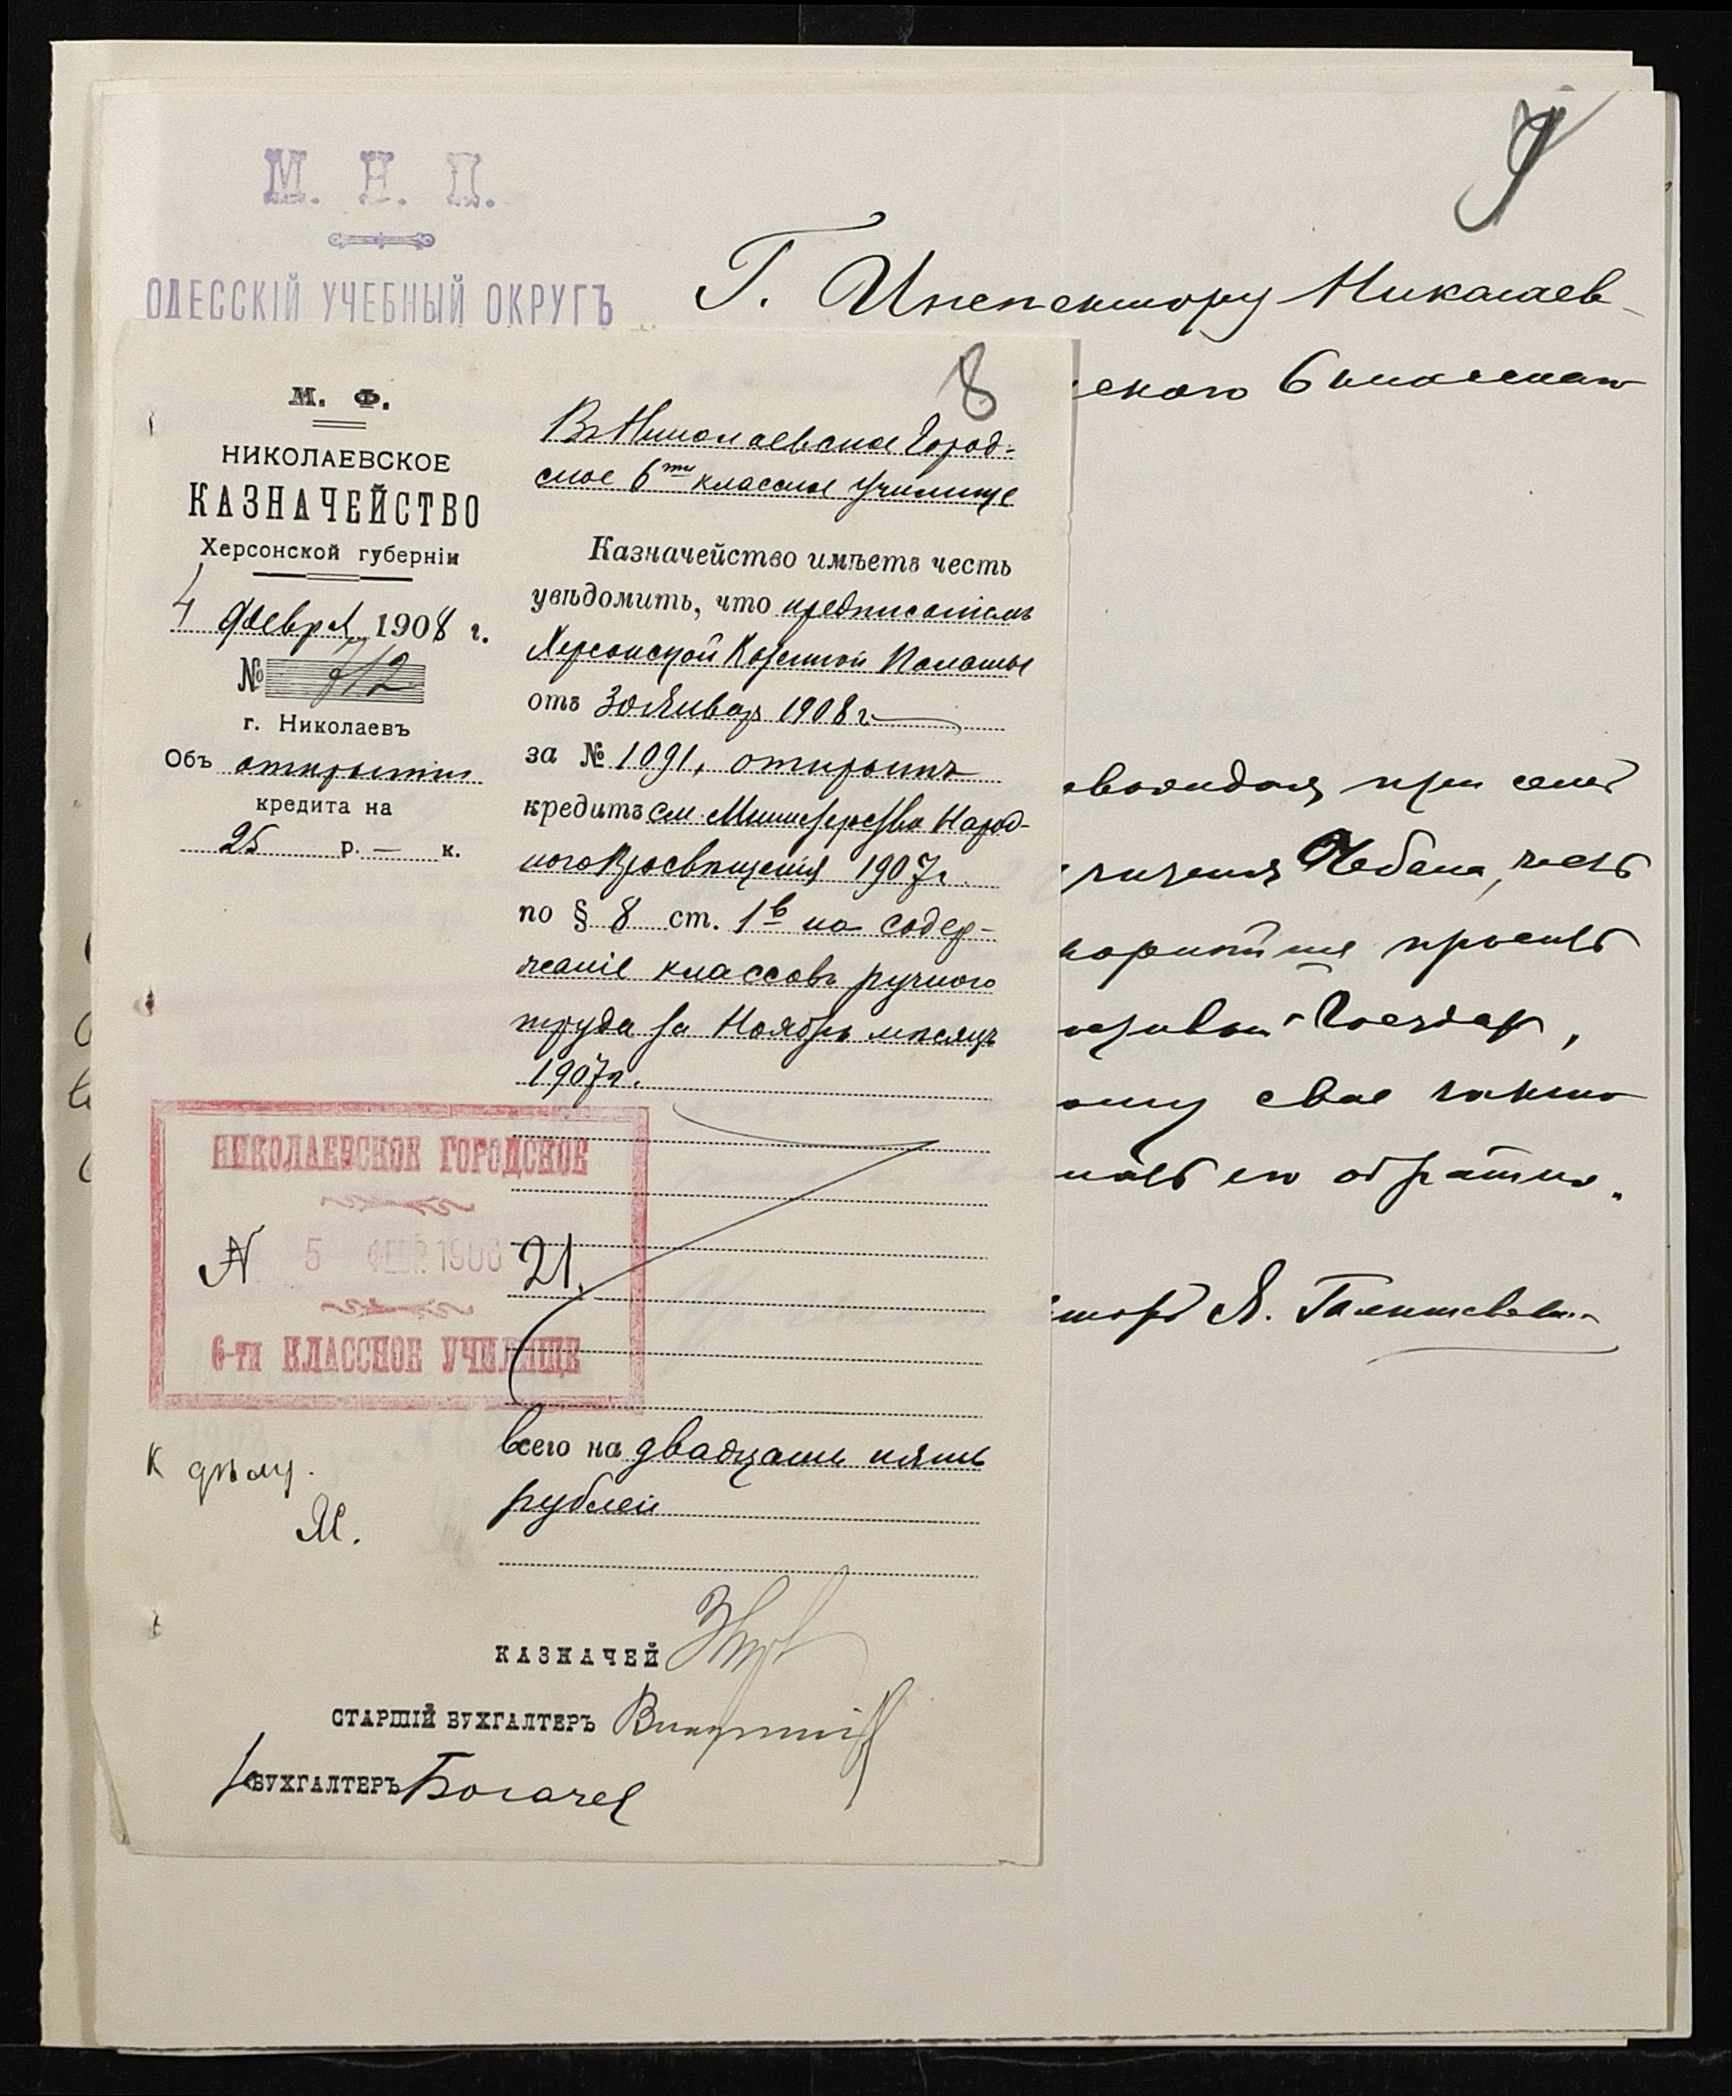 М. Н. П.
ОДЕССКІЙ УЧЕБНЫЙ ОКРУГЪ
9
Г. Инспектору Николаев-
скаго 6 классного
8
М. Ф.
НИКОЛАЕВСКОЕ
КАЗНАЧЕЙСТВО
Херсонской губерніи
4 Феврл 1908 г.
№ 912
г. Николаевъ
Объ открытіи
кредита на
25 р. — к.
Въ Николаевское Город-
ское 6ти классное училище
Казначейство имѣетъ честь
увѣдомить, что предписаніемъ
Херсонской Казенной Палаты
отъ 30 Январ 1908 г
за № 1091, открытъ
кредитъ см. Министерства Народ-
ного Просвѣщенія 1907 г.
по § 8 ст. 1в на содер-
жаніе классовъ ручного
труда за Ноябрь мѣсяцъ
1907 г.
НИКОЛАЕВСКОЕ ГОРОДСКОЕ
N 5 ФЕВ. 1908 21.
6-ти КЛАССНОЕ УЧИЛИЩЕ
всего на двадцать пять
рублей
К дѣлу.
КАЗНАЧЕЙ
СТАРШІЙ БУХГАЛТЕРЪ
БУХГАЛТЕРЪ Богачев
при семъ
Чебана, честь
проситъ
свое
его обратно.